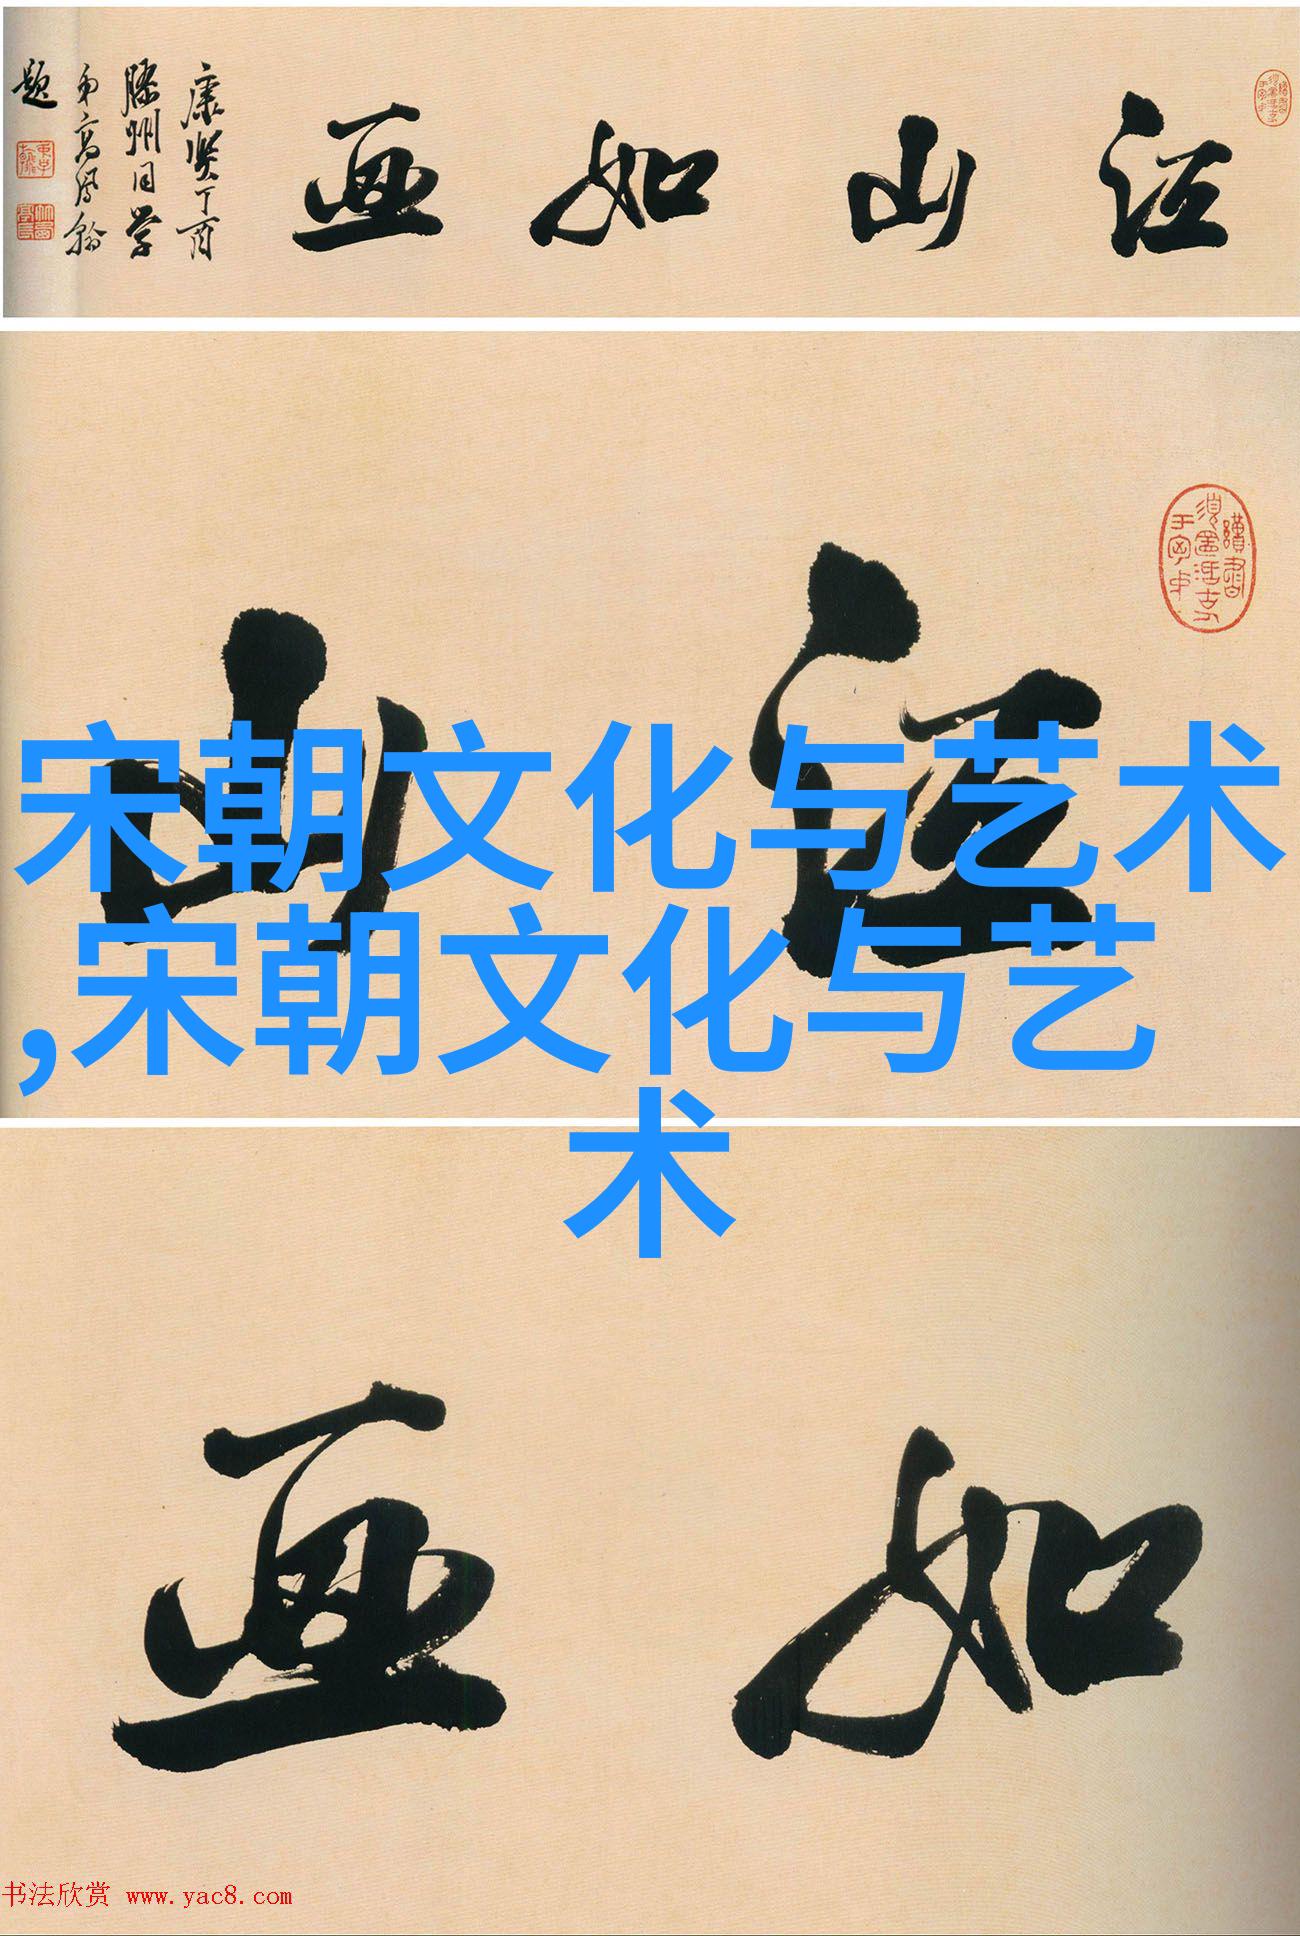 江山如画
康熙丁酉
滕州同学
弟高凤翰
题
江山
宋朝文化与艺术
,宋朝文化与艺
术
如画
书法欣赏 www.yac8.com